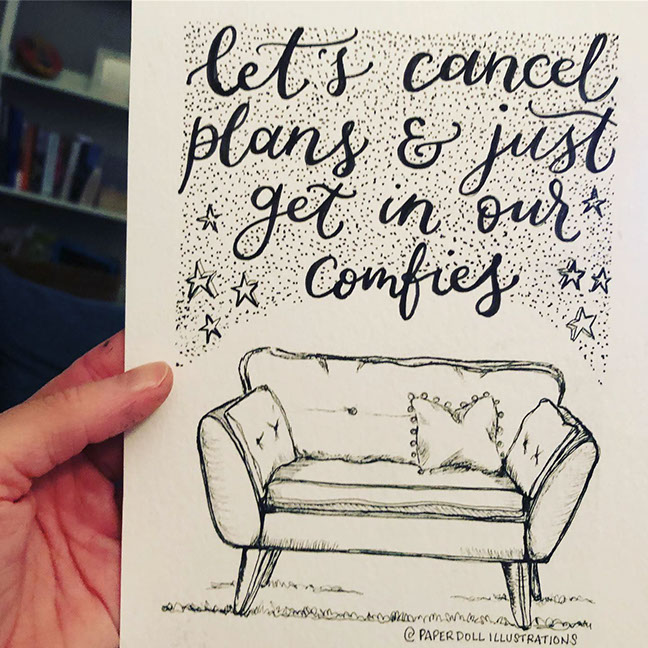 let's cancel
plans & just
get in our
comfies
@PAPERDOLLILLUSTRATIONS